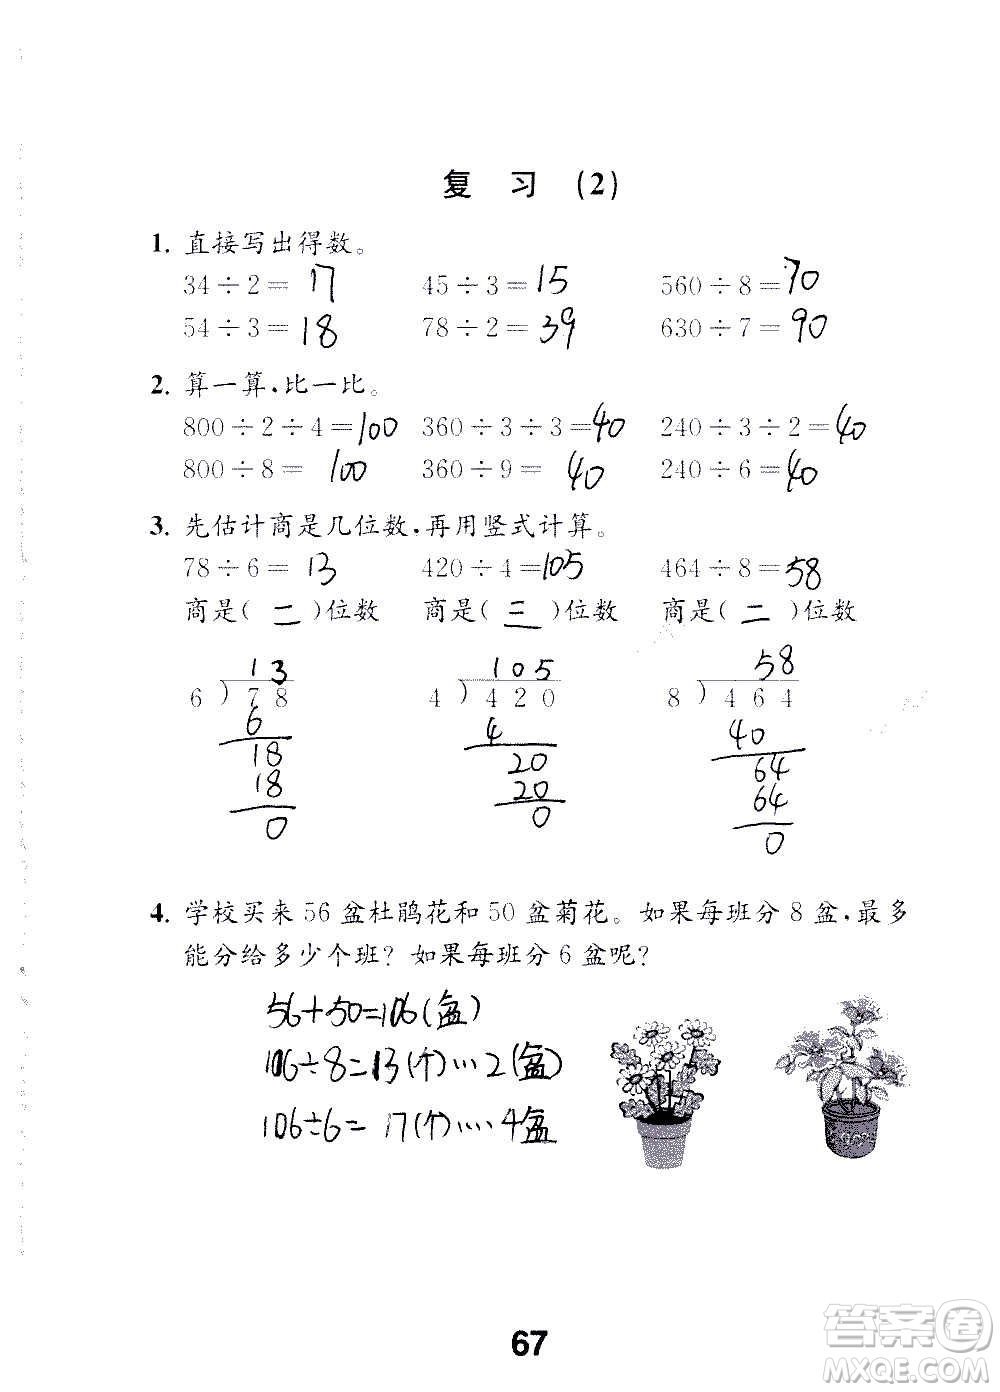 复 习 (2)
1. 直接写出得数。
34÷2= 17 45÷3= 15 560÷8= 70
54÷3= 18 78÷2= 39 630÷7= 90
2. 算一算,比一比。
800÷2÷4= 100 360÷3÷3= 40 240÷3÷2= 40
800÷8= 100 360÷9= 40 240÷6= 40
3. 先估计商是几位数,再用竖式计算。
78÷6= 13 420÷4= 105 464÷8= 58
商是( 二 )位数 商是( 三 )位数 商是( 二 )位数
13 105 58
6)78 4)420 8)464
6 4 40
18 20 64
18 20 64
0 0 0
4. 学校买来 56 盆杜鹃花和 50 盆菊花。如果每班分 8 盆,最多
能分给多少个班? 如果每班分 6 盆呢?
56+50=106(盆)
106÷8=13(个)…2(盆)
106÷6= 17(个)….4盆
67
答案圈
MXQE.COM